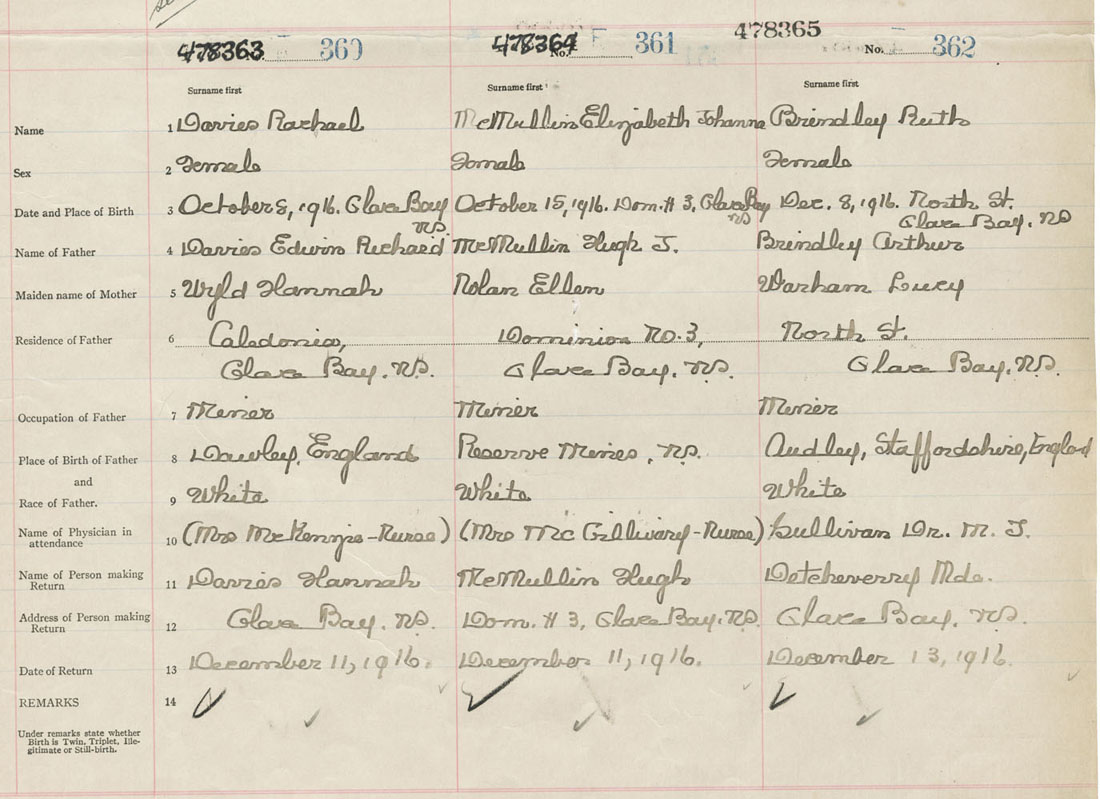 478363 360 478364 No. 361 478365 No. 362
Surname first Surname first Surname first
Name 1 Davies Rachael McMullin Elizabeth Johanna Brindley Ruth
Sex 2 Female Female Female
Date and Place of Birth 3 October 8, 1916. Glace Bay October 15, 1916. Dom. # 3, Glace Bay Dec. 8, 1916. North St.
NS. NS Glace Bay. NS
Name of Father 4 Davies Edwin Richard McMullin Hugh J. Brindley Arthur
Maiden name of Mother 5 Wyld Hannah Nolan Ellen Warham Lucy
Residence of Father 6 Caledonia, Dominion No. 3, North St.
Glace Bay. NS. Glace Bay. NS. Glace Bay. NS.
Occupation of Father 7 Miner Miner Miner
Place of Birth of Father 8 Dawley, England Reserve Mines, NS. Audley, Staffordshire, England
and
Race of Father. 9 White White White
Name of Physician in
attendance 10 (Mrs McKenzie-Nurse) (Mrs McGillivary-Nurse) Sullivan Dr. M. J.
Name of Person making
Return 11 Davies Hannah McMullin Hugh Detcheverry Mde.
Address of Person making
Return 12 Glace Bay. NS. Dom. # 3, Glace Bay. NS. Glace Bay. NS.
Date of Return 13 December 11, 1916. December 11, 1916. December 13, 1916.
REMARKS 14
Under remarks state whether
Birth is Twin, Triplet, Ille-
gitimate or Still-birth.